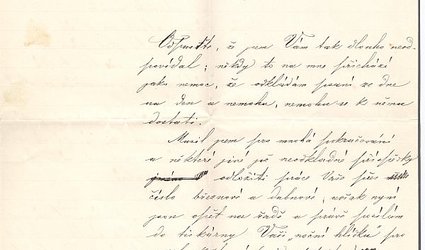 Odpusťte, že jsem Vám tak dlouho neod-
povídal; někdy to na mne přichází
jako nemoc, že odkládám psaní ze dne
na den a nemohu, nemohu se k němu
dostati.
Musil jsem pro mnohá pokračování
a některé jiné již neodkladné příspěvky
odložiti práce Vaše přes
číslo březnové a dubnové, avšak nyní
jsem opět na řadě a právě posílám
do tiskárny Vaši „noční hlídku" pro